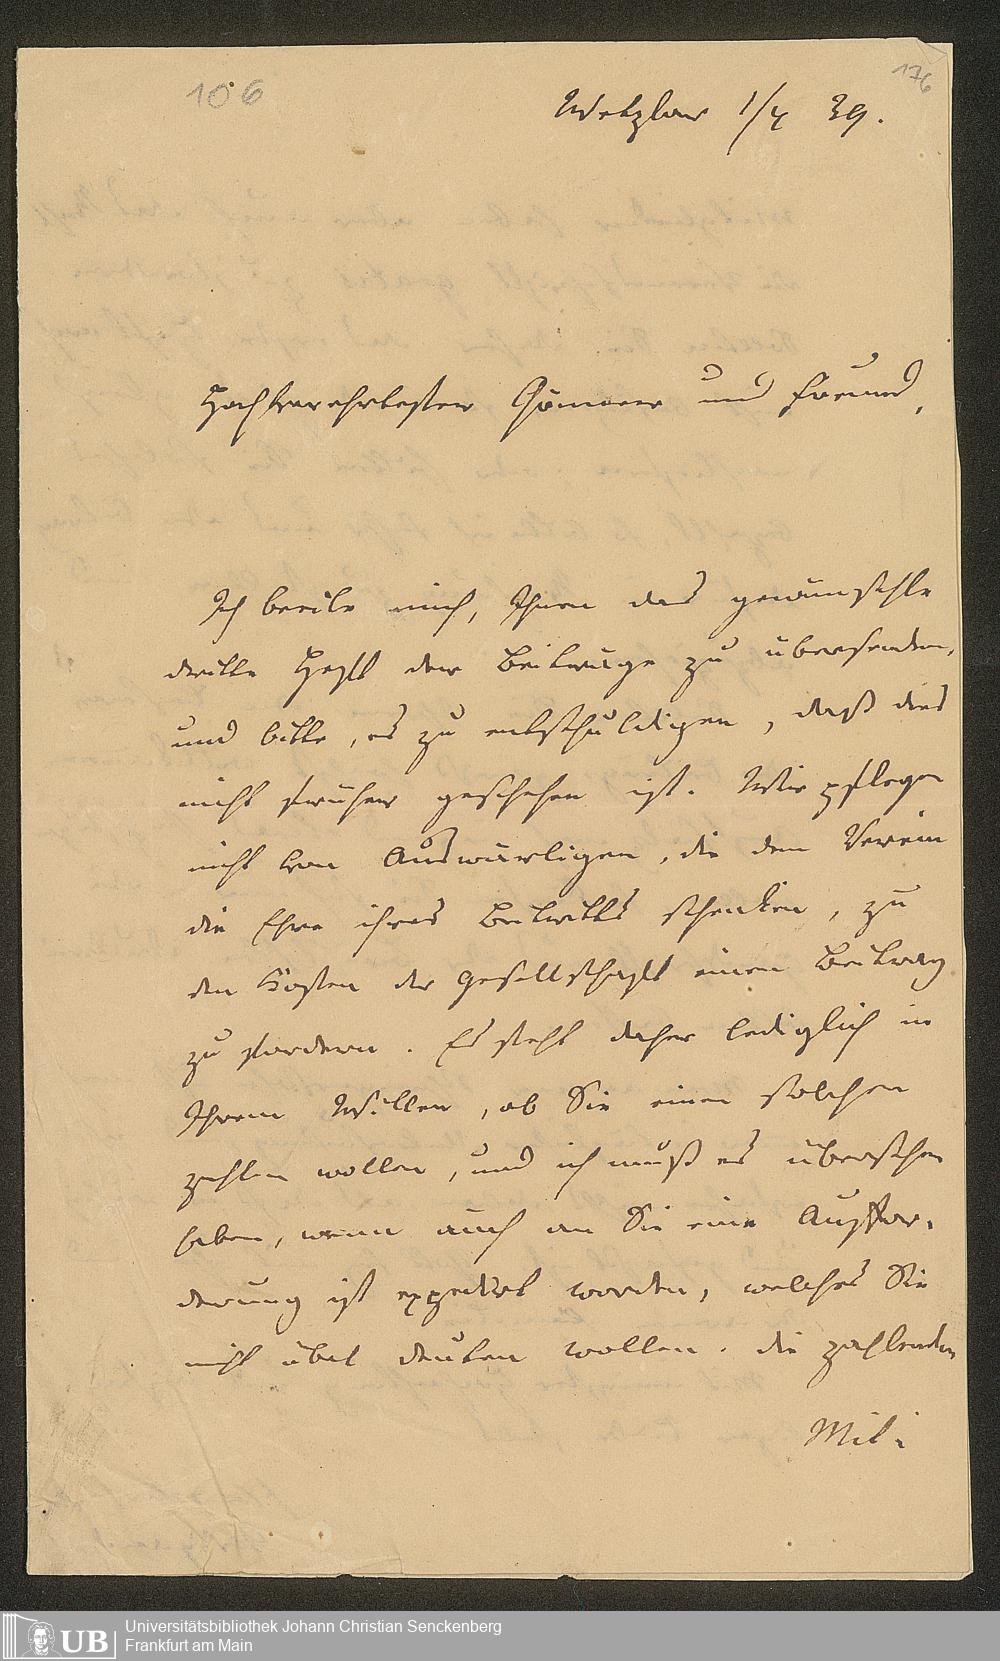 106
176
Wetzlar 1/4 39.
Hochverehrtester Gönner und Freund,
Ich beeile mich, Ihnen das gewünschte
dritte Heft der Beiträge zu übersenden,
und bitte, es zu entschuldigen, daß dies
nicht früher geschehen ist. Wir pflegen
nicht von Auswärtigen, die dem Verein
die Ehre ihres Beitritts schenken, zu
den Kosten der Gesellschaft einen Beitrag
zu fordern. Es steht daher lediglich in
Ihrem Willen, ob Sie einen solchen
zahlen wollen, und ich muß es übersehen
haben, wenn auch an Sie eine Auffor-
derung ist expedirt worden, welches Sie
nicht übel deuten wollen. Die zahlenden
Mit-
UB
Universitätsbibliothek Johann Christian Senckenberg
Frankfurt am Main